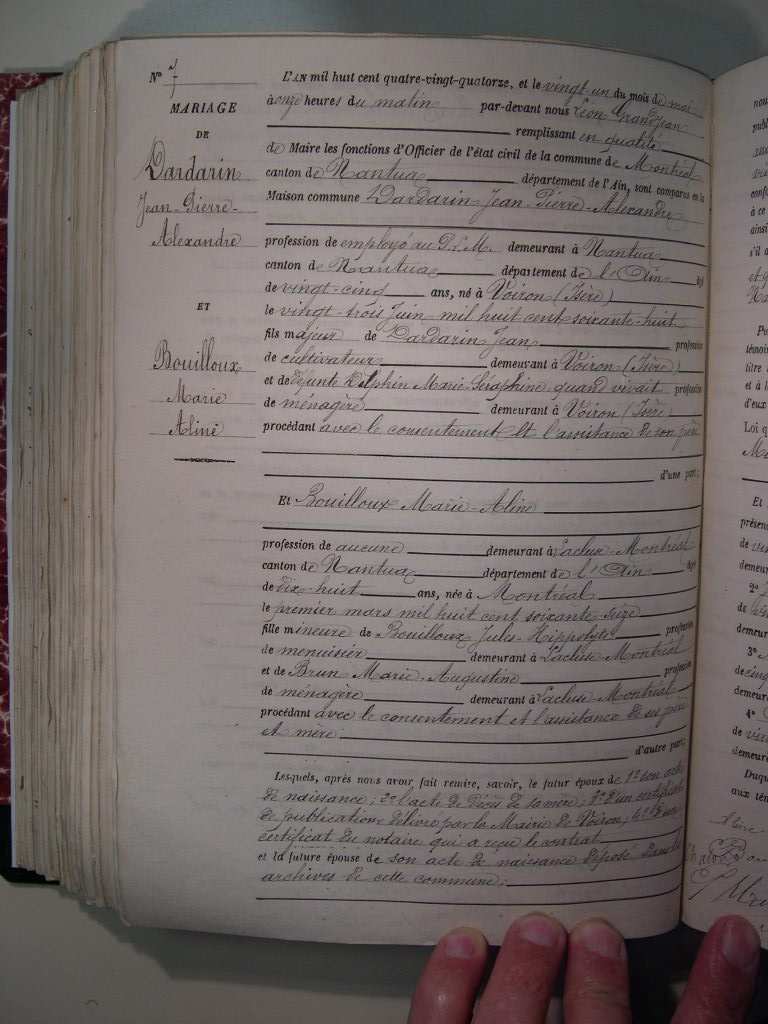 Nº 7
MARIAGE
DE
Dardarin
Jean-Pierre-
Alexandre
ET
Bouilloux
Marie
Aline
L'AN mil huit cent quatre-vingt-quatorze, et le vingt un du mois de mai
à onze heures du matin par-devant nous Léon Grandjean
remplissant en qualité
de Maire les fonctions d'Officier de l'état civil de la commune de Montréal
canton de Nantua département de l'Ain, sont comparus en la
Maison commune Dardarin Jean-Pierre-Alexandre
profession de employé au P.L.M. demeurant à Nantua
canton de Nantua département de l'Ain âgé
de vingt-cinq ans, né à Voiron (Isère)
le vingt-trois Juin mil huit cent soixante-huit
fils majeur de Dardarin Jean profession
de cultivateur demeurant à Voiron (Isère)
et de défunte Delphin Marie Séraphine quand vivait profession
de ménagère demeurant à Voiron (Isère
procédant avec le consentement et l'assistance de son père
d'une part;
Et Bouilloux Marie-Aline
profession de aucune demeurant à Lacluse-Montréal
canton de Nantua département de l'Ain âgé
de dix-huit ans, née à Montréal
le premier mars mil huit cent soixante seize
fille mineure de Bouilloux Jules-Hippolyte profession
de menuisier demeurant à Lacluse-Montréal
et de Brun Marie-Augustine profession
de ménagère demeurant à Lacluse Montréal
procédant avec le consentement et l'assistance de ses père
et mère
d'autre part;
Lesquels, après nous avoir fait remise, savoir, le futur époux de 1º son acte
de naissance; 2º l'acte de décès de sa mère; 3º d'un certificat
de publication délivré par la Mairie de Voiron; 4º
certificat du notaire qui a reçu le contrat
et la future épouse de son acte de naissance déposé dans les
archives de cette commune.